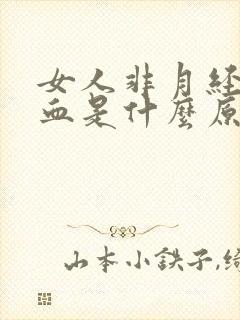 女人非月经
血是什麼原
山本小鉄子,绮